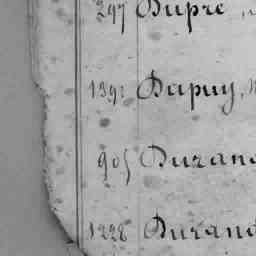 297 Dupré
1391 Dupuy,
905 Durand
1228 Durand